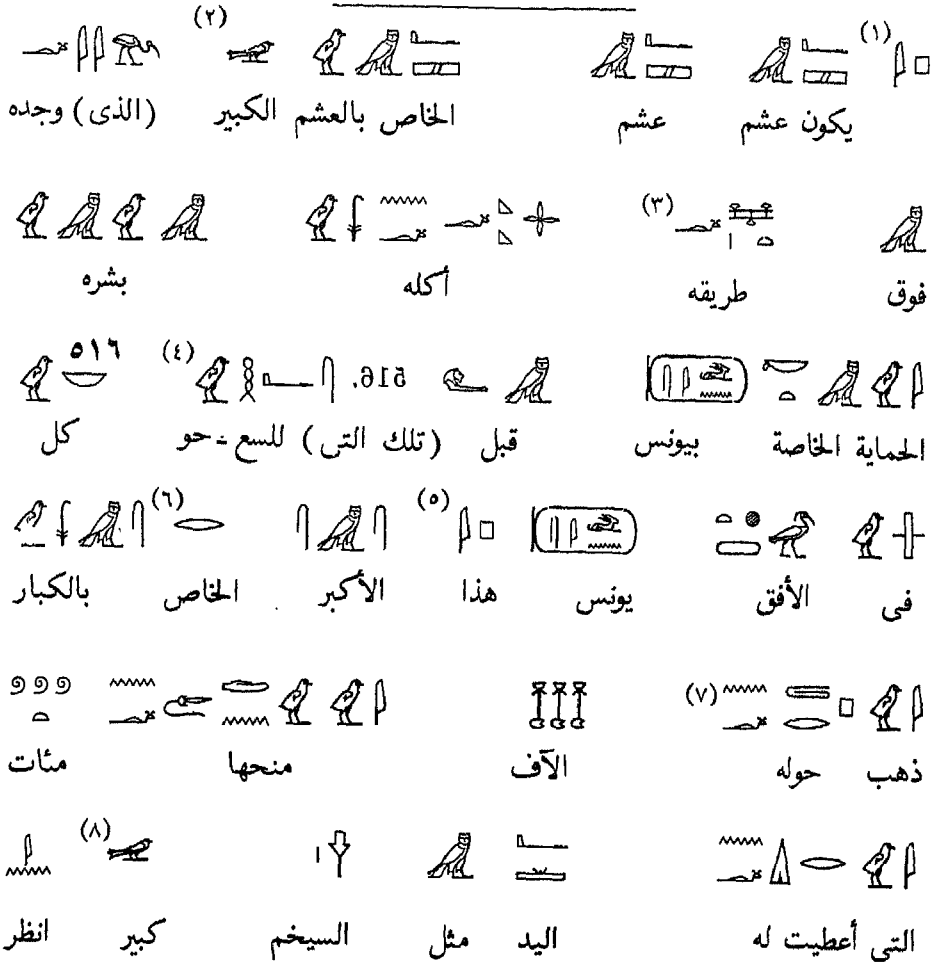 (١) (٢)
يكون عشم عشم الخاص بالعشم الكبير (الذى) وجده
(٣)
فوق طريقه أكله بشره
516. (٤) ٥١٦
الحماية الخاصة بيونس قبل (تلك التى) للسع - حو كل
(٥) (٦)
فى الأفق يونس هذا الأكبر الخاص بالكبار
(٧)
ذهب حوله الآف منحها مئات
(٨)
التى أعطيت له اليد مثل السيخم كبير انظر